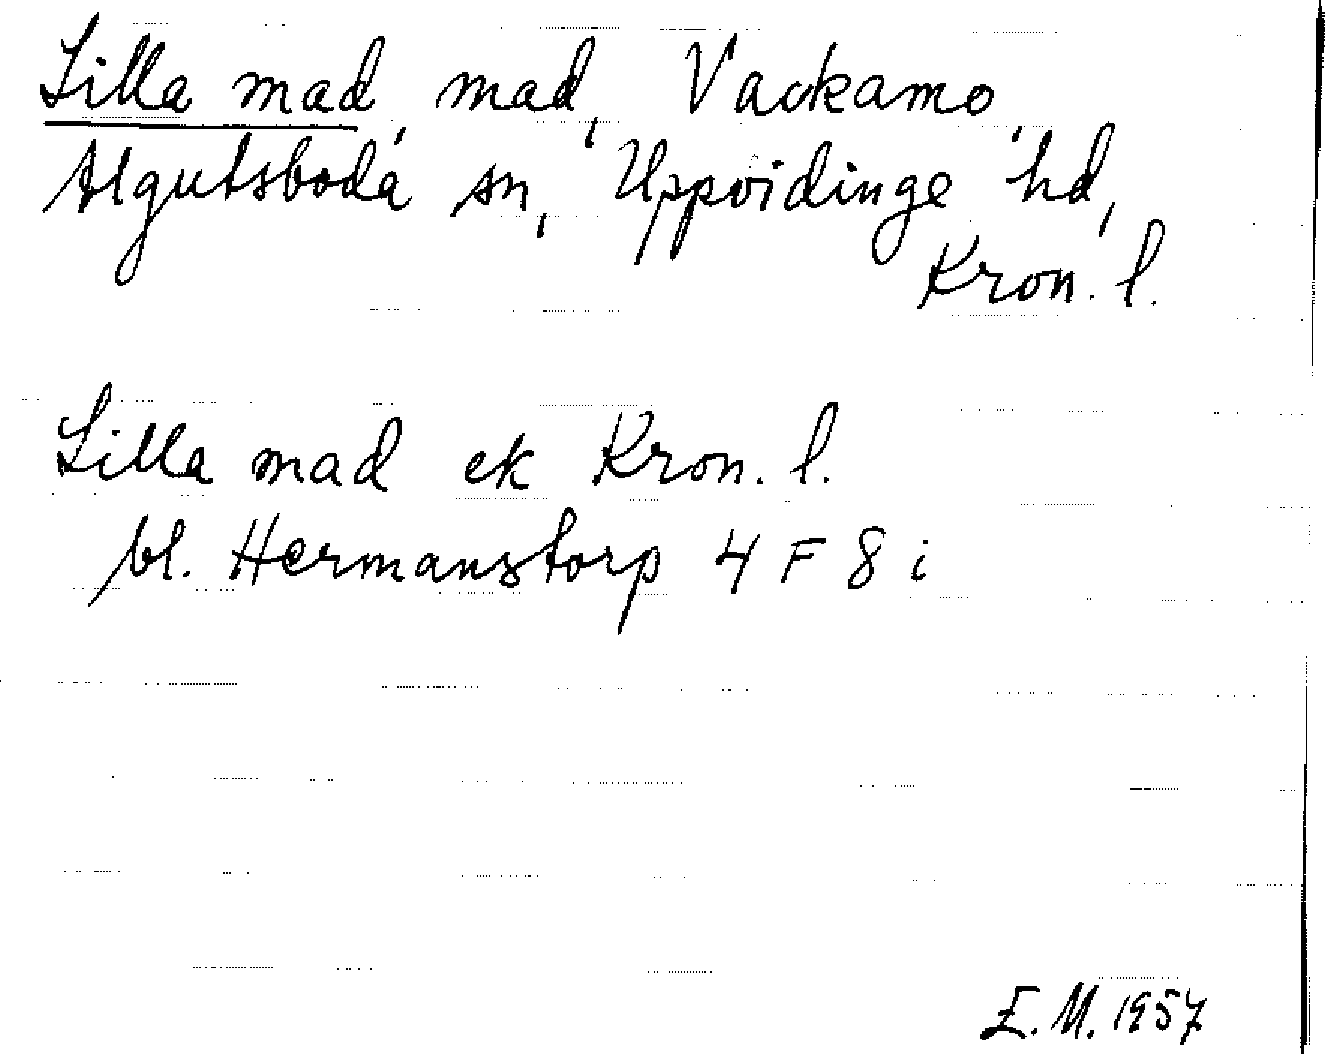 Lilla mad, mad, Vackamo,
Algutsboda sn, Uppvidinge hd,
Kron. l.
Lilla mad ek Kron. l.
bl. Hermanstorp 4 F 8 i
E. M. 1957